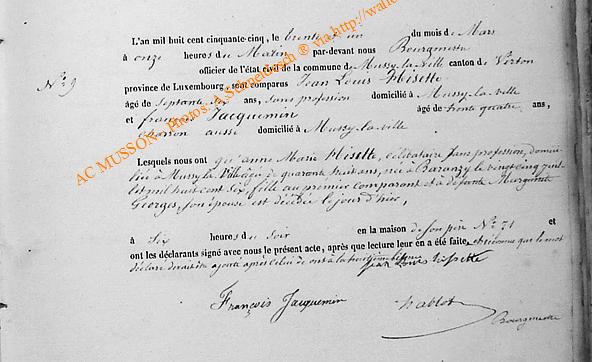 L'An mil huit cent cinquante-cinq, le trente et un du mois de Mars
à onze heures du Matin par-devant nous Bourgmestre
N° 29
officier de l'état civil de la commune de Mussy-la-ville canton de Virton
province de Luxembourg, sont comparus Jean Louis Hisette
âgé de septante ans, sans profession domicilié à Mussy-la-ville
et françois Jacquemin âgé de trente quatre ans,
charron aussi domicilié à Mussy-la-ville
Lesquels nous ont qu'anne Marie Hisette, célibataire sans profession, domici-
liée à Mussy-la-Ville âgée de quarante huit ans, née à Baranzy le vingt cinq juil-
let mil huit cent six, fille au premier comparant et à défunte Marguerite
Georges, son épouse est décédée le jour d'hier,
à Six heures du Soir en la maison de son père N° 71 et
ont les déclarants signé avec nous le présent acte, après que lecture leur en a été faite, et reconnu que le mot
déclaré devait être ajouté après celui de ont à la
Jean Louis hisette
François Jacquemin
Bourgmestre
AC MUSSON - Photos: A. Schneidesch ® via http://wallo